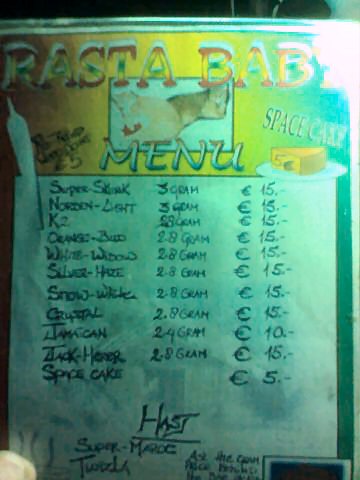 RASTA BABY
SPACE CAKE
5€
MENU
SUPER-SKUNK 3 GRAM € 15.-
NORDEN-LIGHT 3 GRAM € 15.-
K2 GRAM € 15.-
ORANGE-BUD 2.8 GRAM € 15.-
WHITE-WIDOW 2.8 GRAM € 15.-
SILVER-HAZE 2.8 GRAM € 15.-
SNOW-WHITE 2.8 GRAM € 15.-
CRYSTAL 2.8 GRAM € 15.-
JAMAICAN 2.4 GRAM € 10.-
JACK-HERER 2.8 GRAM € 15.-
SPACE CAKE € 5.-
HASJ
SUPER-MAROC
ASK THE GRAM
PRICE